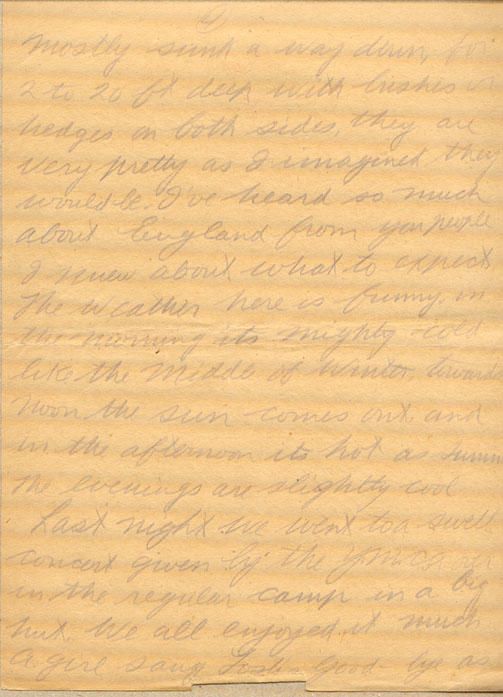 mostly sunk a way down, for
2 to 20 ft deep with bushes or
hedges on both sides, they are
very pretty as I imagined they
would be. I've heard so much
about England from you people
I knew about what to expect
The weather here is funny in
the morning its mighty cold
like the middle of winter, towards
noon the sun comes out and
in the afternoon its hot as summ
The evenings are slightly cool
Last night we went to a swell
concert given by the YMCA
in the regular camp in a big
hut. We all enjoyed it much
A girl sang Good bye as